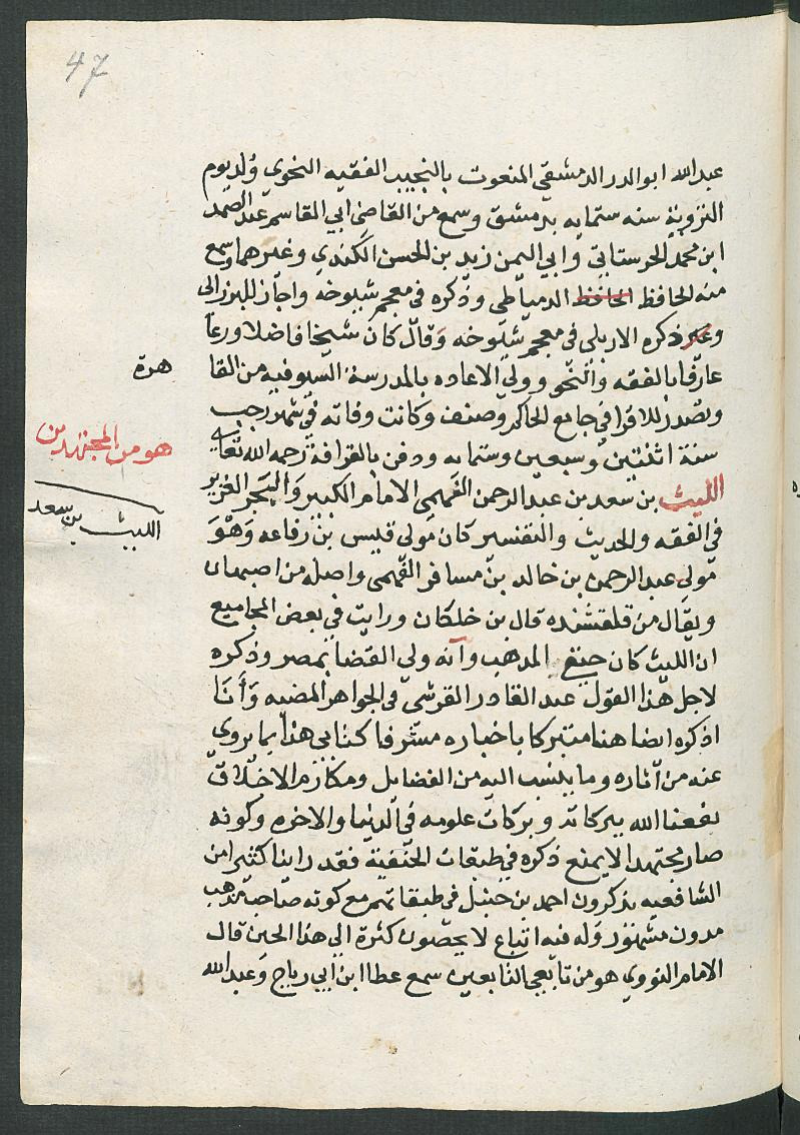 47
عبدالله ابوالدر الدمشقي المنعوت بالنجيب الفقيه النحوي ولد يوم
التروية سنه ستمايه بدمشق وسمع من القاضى ابي القاسم عبد الصمد
ابن محمد الحرستاني وابي اليمن زيد بن الحسن الكندي وغيرهما وسمع
منه الحافظ الحافظ الدمياطى وذكره فى معجم شيوخه واجاز للبرزالى
وذكره الاربلى فى معجم شيوخه وقال كان شيخا فاضلا ورعا
عارفا بالفقه والنحو وولي الاعاده بالمدرسة السيوفيه من القا
هرة
وتصدر للاقرا في جامع الحاكم وصنف وكانت وفاته في شهر رجب
سنة اثنتين وسبعين وستمايه ودفن بالقرافة رحمه الله تعالى
هو من المجتهدين
الليث بن سعد بن عبد الرحمن الفهمي الامام الكبير والبحر الغزير
الليث بن سعد
في الفقه والحديث والتفسير كان مولى قيس بن رفاعه وهو
مولى عبد الرحمن بن خالد بن مسافر الفهمى واصله من اصبهان
ويقال من قلقشنده قال بن خلكان ورايت في بعض المجاميع
ان الليث كان حنفي المذهب وانه ولي القضا بمصر وذكره
لاجل هذا القول عبد القادر القرشي في الجواهر المضيه وانا
اذكره ايضا هنا متبركا باخباره مشرفا كتابي هذا بما يروى
عنه من آثاره وما ينسب اليه من الفضايل ومكارم الاخلاق
نفعنا الله ببركاته وبركات علومه في الدنيا والاخره وكونه
صار مجتهدا لا يمنع ذكره في طبقات الحنفية فقد راينا كثيرا من
الشافعيه يذكرون احمد بن حنبل فى طبقاتهم مع كونه صاحب مذهب
مدون مشهور وله فيه اتباع لا يحصون كثرة الي هذا الحين قال
الامام النووي هو من تابعي التابعين سمع عطا ابن ابي رباح وعبد الله